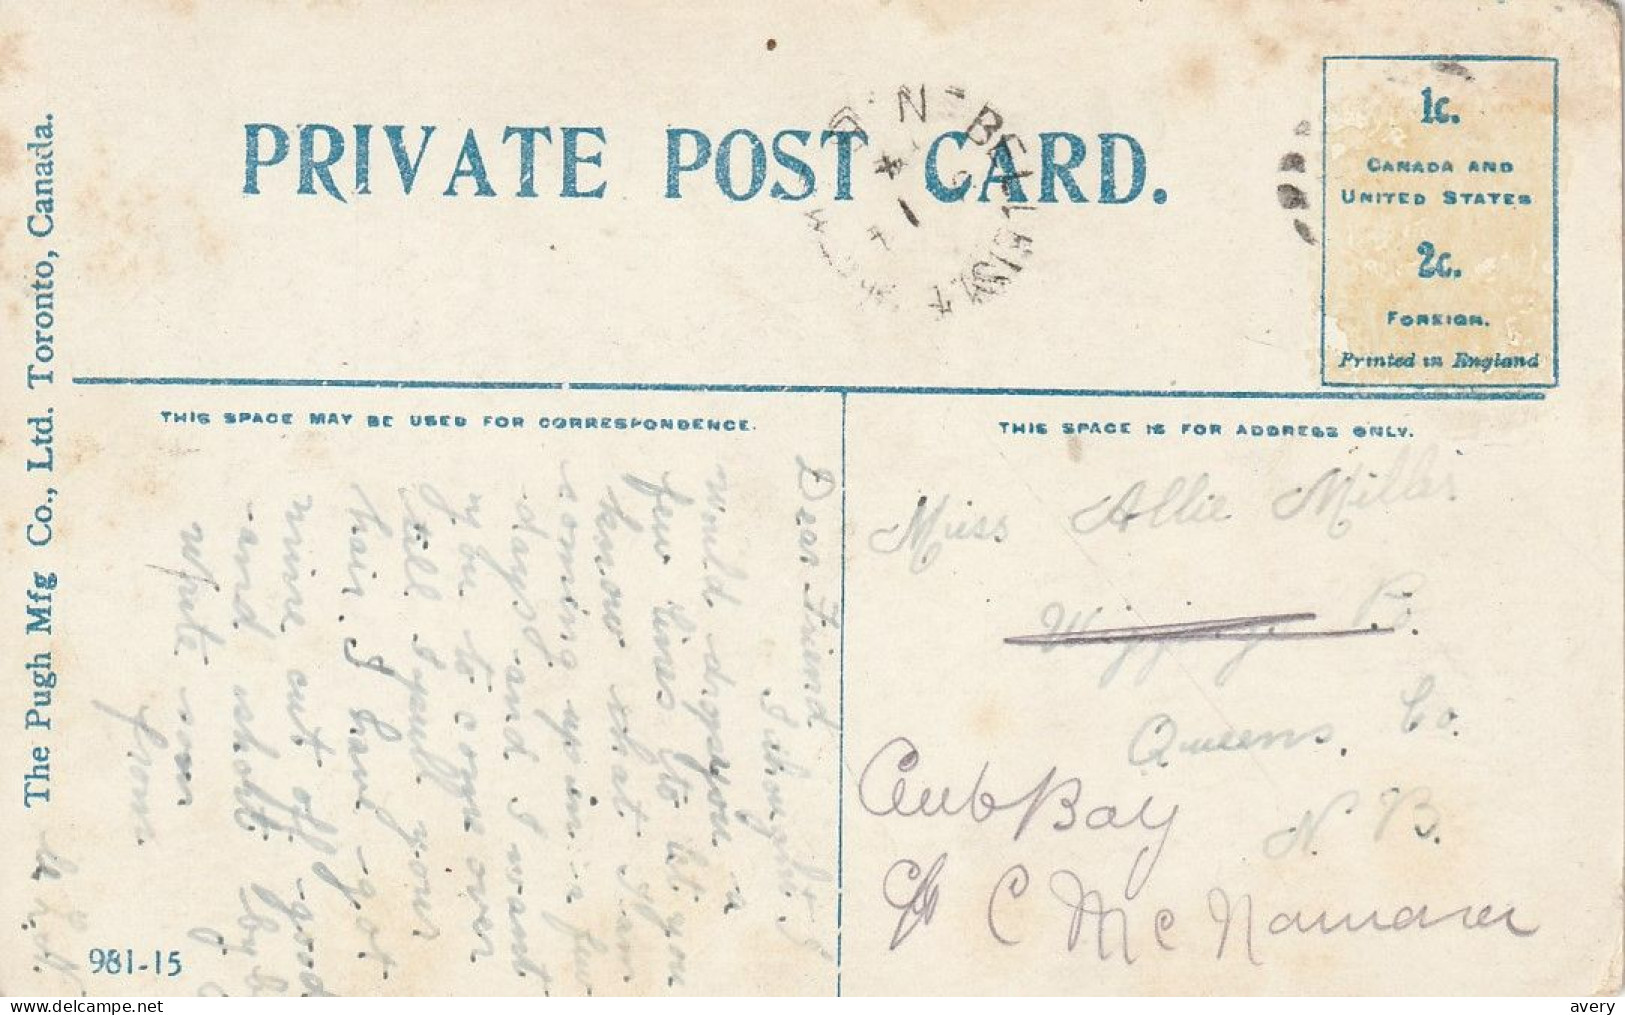 PRIVATE POST CARD.
1c.
CANADA AND
UNITED STATES
2c.
FOREIGN.
Printed in England
The Pugh Mfg Co., Ltd. Toronto, Canada.
THIS SPACE MAY BE USED FOR CORRESPONDENCE.
THIS SPACE IS FOR ADDRESS ONLY.
Dear Friend
I thought I
would drop you a
few lines to let you
know that I am
coming up in a few
days and I want
you to come over
till I pull your
hair. I have got
mine cut off good
and short by by
write soon
from
Miss Allie Miller
P.o.
Queens. Co.
N. B.
Cub Bay
C/o C McNamarer
981-15
avery